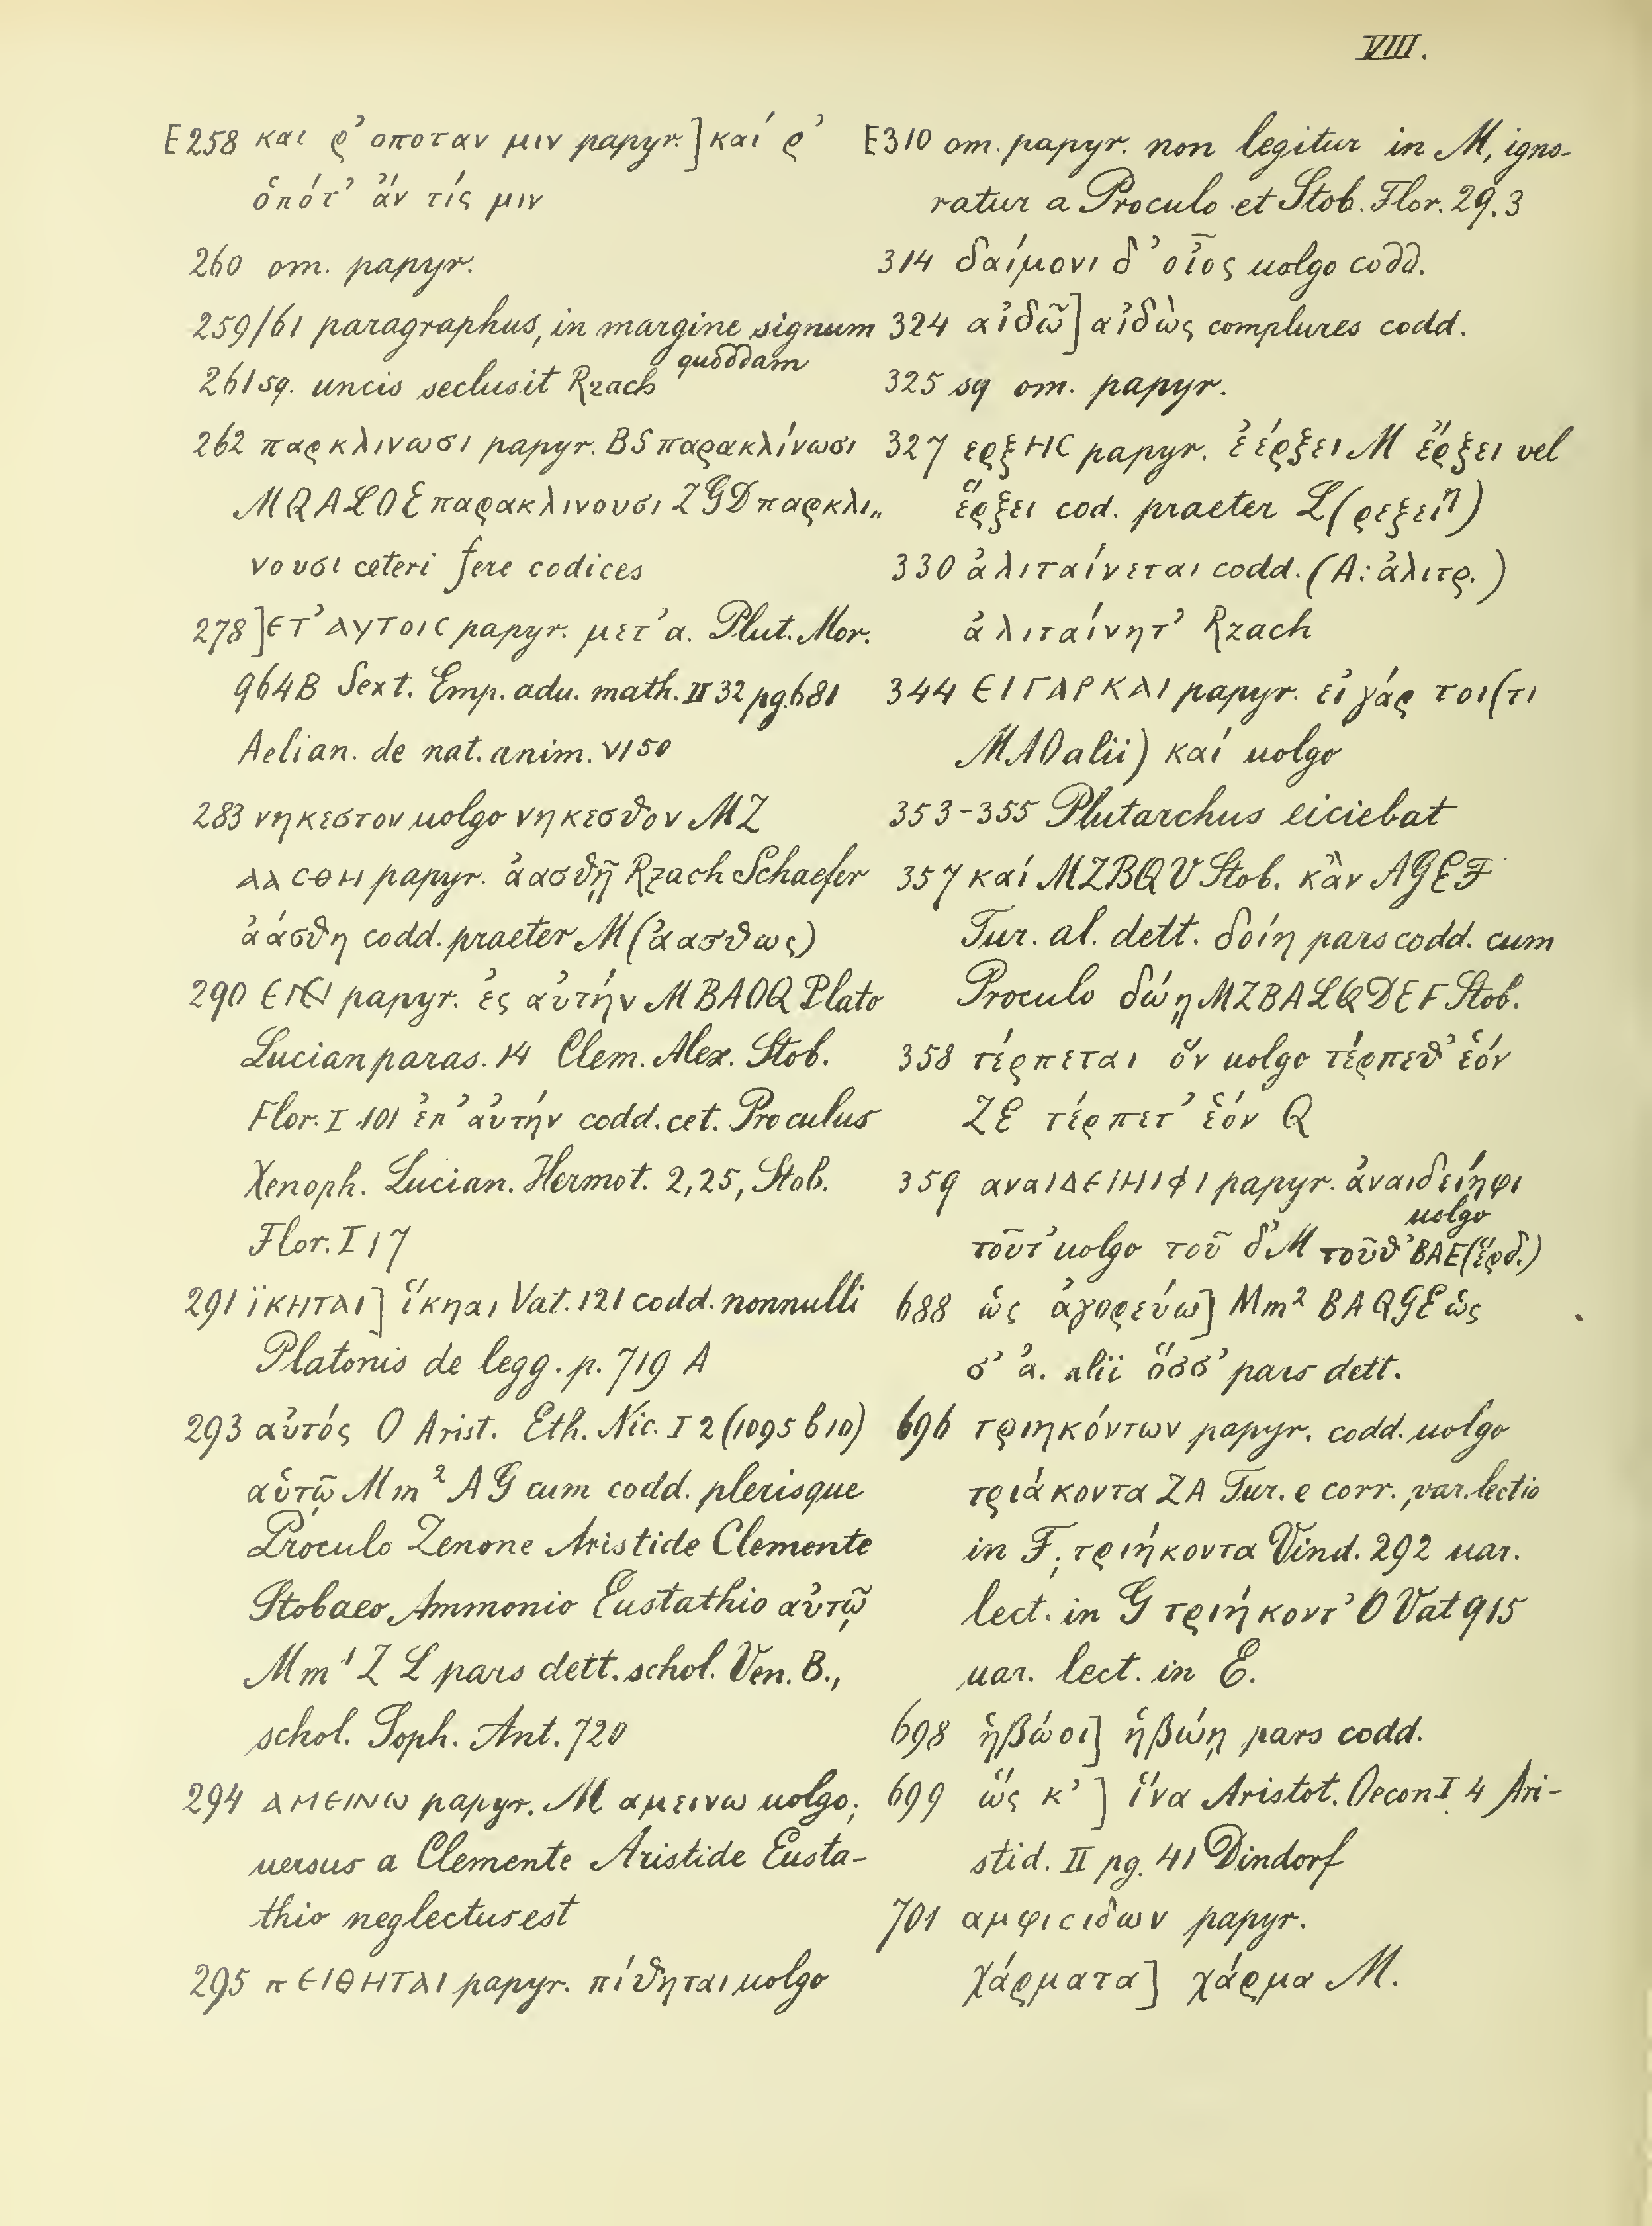 VIII.
E 258 και ρ’ οποταν μιν papyr.] καί ρ’
ὁπότ’ ἄν τίς μιν
260 om. papyr.
259/61 paragraphus, in margine signum
quoddam
261 sq. uncis seclusit Rzach
262 παρκλινωσι papyr. BS παρακλίνωσι
MQALOE παρακλινουσι ZGD παρκλι„
νουσι ceteri fere codices
278 ]ЄΤ’ ΑΥΤΟΙC papyr. μετ’ α. Plut. Mor.
964B Sext. Emp. adu. math. II 32 pg. 681
Aelian. de nat. anim. VI 50
283 νηκεστον uolgo νηκεσθον MZ
ΑΑCΘΗ papyr. ἀασθῇ Rzach Schaefer
ἀάσθη codd. praeter M (ἀασθως)
290 papyr. ἐς αὐτήν MBAOQ Plato
Lucian paras. 14 Clem. Alex. Stob.
Flor. I 101 ἐπ’ αὐτήν codd. cet. Proculus
Xenoph. Lucian. Hermot. 2, 25, Stob.
Flor. I 17
291 ΪΚΗΤΑΙ] ἵκηαι Vat. 121 codd. nonnulli
Platonis de legg. p. 719 A
293 αὐτός O Arist. Eth. Nic. I 2 (1095 b 10)
αὑτῷ Mm² AG cum codd. plerisque
Proculo Zenone Aristide Clemente
Stobaeo Ammonio Eustathio αὐτῷ
Mm¹ Z L pars dett. schol. Ven. B.,
schol. Soph. Ant. 720
294 ΑΜЄΙΝω papyr. M αμεινω uolgo;
uersus a Clemente Aristide Eusta-
thio neglectus est
295 πЄΙΘΗΤΑΙ papyr. πίθηται uolgo
E 310 om. papyr. non legitur in M, igno-
ratur a Proculo et Stob. Flor. 29. 3
314 δαίμονι δ’ οἷος uolgo codd.
324 αἰδῶ] αἰδὼς complures codd.
325 sq om. papyr.
327 ερξΗC papyr. ἐέρξει M ἔρξει vel
ἕρξει cod. praeter L (ρεξειη)
330 ἀλιταίνεται codd. (A: ἀλιτρ.)
ἀλιταίνητ’ Rzach
344 ЄΙΓΑΡΚΑΙ papyr. εἰ γάρ τοι (τι
MAO alii) καί uolgo
353-355 Plutarchus eiciebat
357 καί MZBQV Stob. κἂν AGEF
Tur. al. dett. δοίη pars codd. cum
Proculo δώῃ MZBALQDEF Stob.
358 τέρπεται ὅν uolgo τέρπεθ’ ἑόν
ZE τέρπετ’ ἑόν Q
359 αναΙΔΕΙΗΙΦΙ papyr. ἀναιδείηφι
uolgo
τοῦτ’ uolgo τοῦ δ’ M τοῦθ’ BAE (ἕρδ.)
688 ὡς ἀγορεύω] Mm² BAQGE ὡς
σ’ ἀ. alii ὅσσ’ pars dett.
696 τριηκόντων papyr. codd. uolgo
τριάκοντα ZA Tur. e corr., var. lectio
in F, τριήκοντα Vind. 292 uar.
lect. in G τριήκοντ’ O Vat 915
uar. lect. in E.
698 ἡβώοι] ἡβώῃ pars codd.
699 ὥς κ’] ἵνα Aristot. Oecon I. 4 Ari-
stid. II pg. 41 Dindorf
701 αμφιcιδων papyr.
χάρματα] χάρμα M.